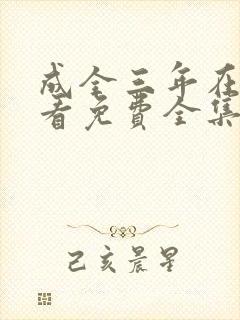 成全三年在
看免费全集
己亥晨星